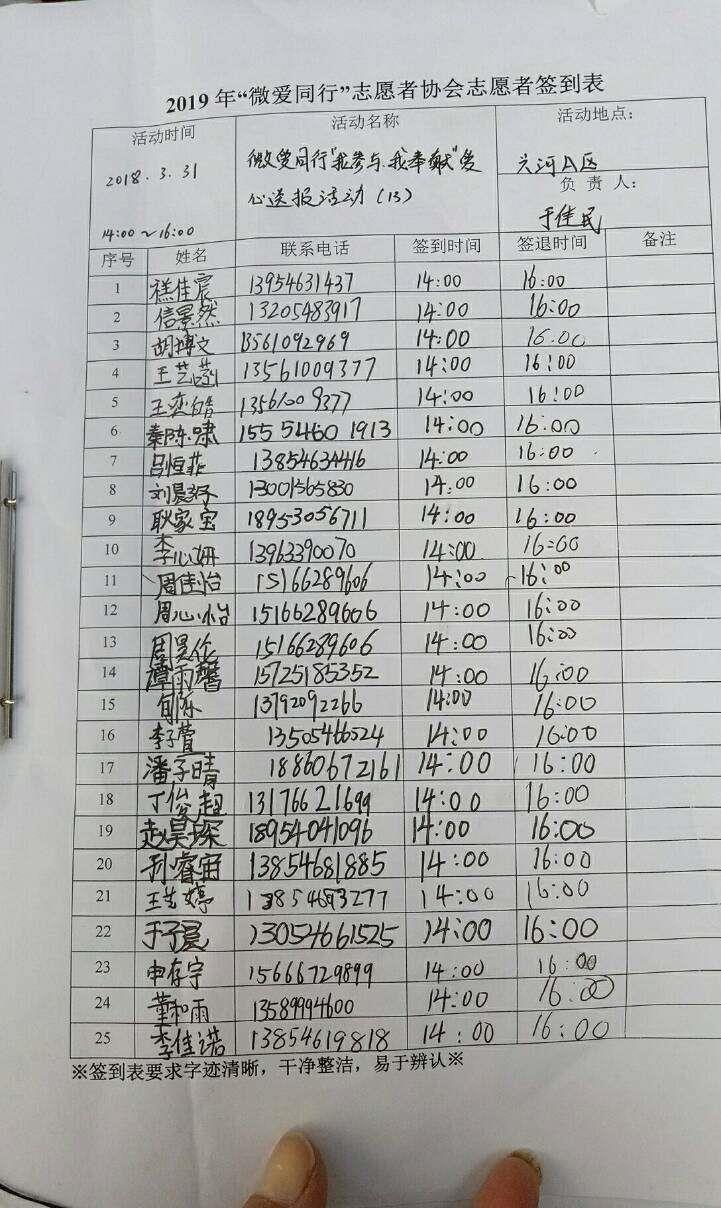 2019 年“微爱同行”志愿者协会志愿者签到表
活动时间 活动名称 活动地点：
2018.3.31 微爱同行"我参与.我奉献"爱 兴河A区
14:00~16:00 心送报活动（13） 负责人：
于佳民
序号 姓名 联系电话 签到时间 签退时间 备注
1 佳宸 13954631437 14:00 16:00
2 信景然 13205483917 14:00 16:00
3 胡博文 13561092969 14:00 16:00
4 王艺 13561009377 14:00 16:00
5 王奕皓 13561009377 14:00 16:00
6 秦陈啸 15554601913 14:00 16:00
7 吕恒菲 13854634416 14:00 16:00
8 刘晨 13001565830 14:00 16:00
9 耿家宝 18953056711 14:00 16:00
10 李心妍 13963390070 14:00 16:00
11 周佳怡 15166289606 14:00 16:00
12 周心怡 15166289606 14:00 16:00
13 周昊 15166289606 14:00 16:00
14 雨馨 15725185352 14:00 16:00
15 13792092266 14:00 16:00
16 李子萱 13505466524 14:00 16:00
17 潘子晴 18860672161 14:00 16:00
18 丁俊超 13176621699 14:00 16:00
19 赵昊琛 18954041096 14:00 16:00
20 刘睿宙 13854681885 14:00 16:00
21 王艺婷 13854693277 14:00 16:00
22 于子夏 13054661525 14:00 16:00
23 申存宇 15666729899 14:00 16:00
24 董和雨 13589994600 14:00 16:00
25 李佳诺 13854619818 14:00 16:00
※签到表要求字迹清晰，干净整洁，易于辨认※